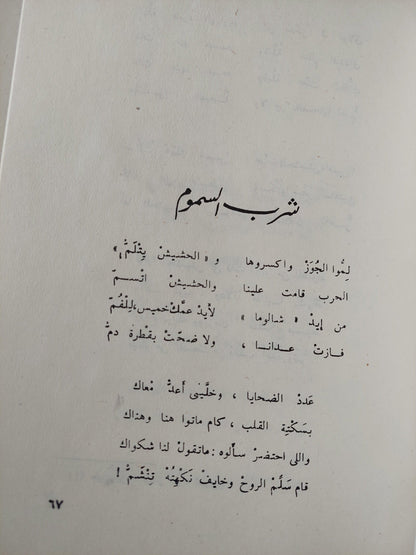 شرب السموم
لِمُّوا الجُوَزْ واكسروها و « الحشيشْ يِتْلَمُّ »
الحرب قامت علينا والحشيشْ اتْسمّ
من إيدْ « شالوما » لأيدْ عمَّكْ خميس، لِلْفُمّ
فازتْ عدانا ، ولا ضحّتْ بقَطْرة دمُّ
عَددْ الضحايا ، وخلِّينى أعدُّ مْعاك
بسَكْتِةِ القلب ، كام ماتوا هنا وهناك
واللى احتضرْ سألوه : ماتقولْ لنا شكواك
قام سَلِّمْ الروحْ وخايفْ نَكْهِتُهْ تِنْشَمُّ !
٦٧